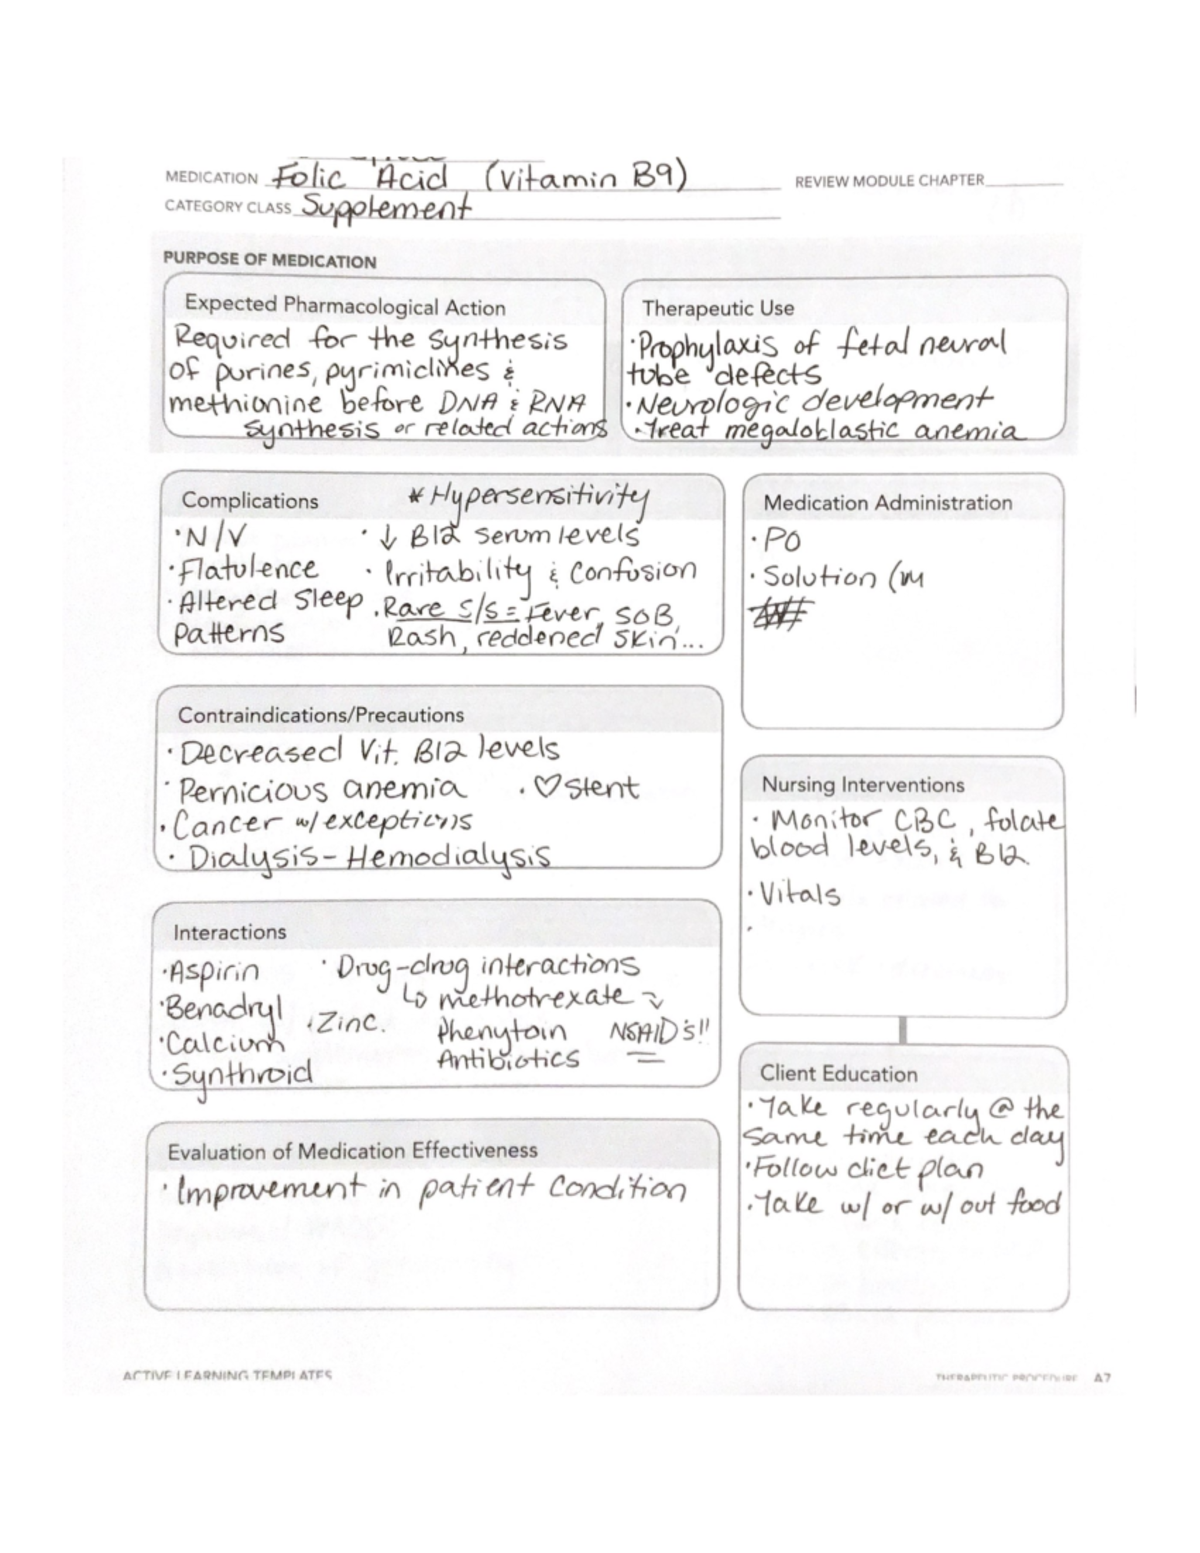 MEDICATION Folic Acid (Vitamin B9) REVIEW MODULE CHAPTER
CATEGORY CLASS Supplement
PURPOSE OF MEDICATION
Expected Pharmacological Action
Required for the synthesis
of purines, pyrimidines &
methionine before DNA & RNA
synthesis or related actions
Therapeutic Use
·Prophylaxis of fetal neural
tube defects
·Neurologic development
·Treat megaloblastic anemia
Complications *Hypersensitivity
·N/V ·↓ B12 serum levels
·Flatulence · Irritability & Confusion
·Altered Sleep · Rare S/S = Fever, SOB,
patterns Rash, reddened skin...
Medication Administration
· PO
· Solution (IM
Contraindications/Precautions
·Decreased Vit. B12 levels
· Pernicious anemia · ♡ Stent
·Cancer w/ exceptions
· Dialysis - Hemodialysis
Nursing Interventions
· Monitor CBC, folate
blood levels, & B12.
·Vitals
·
Interactions
·Aspirin · Drug-drug interactions
↳ methotrexate ↴
·Benadryl ·Zinc. Phenytoin NSAID's!!
·Calcium Antibiotics
·Synthroid
Client Education
·Take regularly @ the
same time each day
·Follow diet plan
·Take w/ or w/out food
Evaluation of Medication Effectiveness
· Improvement in patient condition
ACTIVE LEARNING TEMPLATES THERAPEUTIC PROCEDURE A7